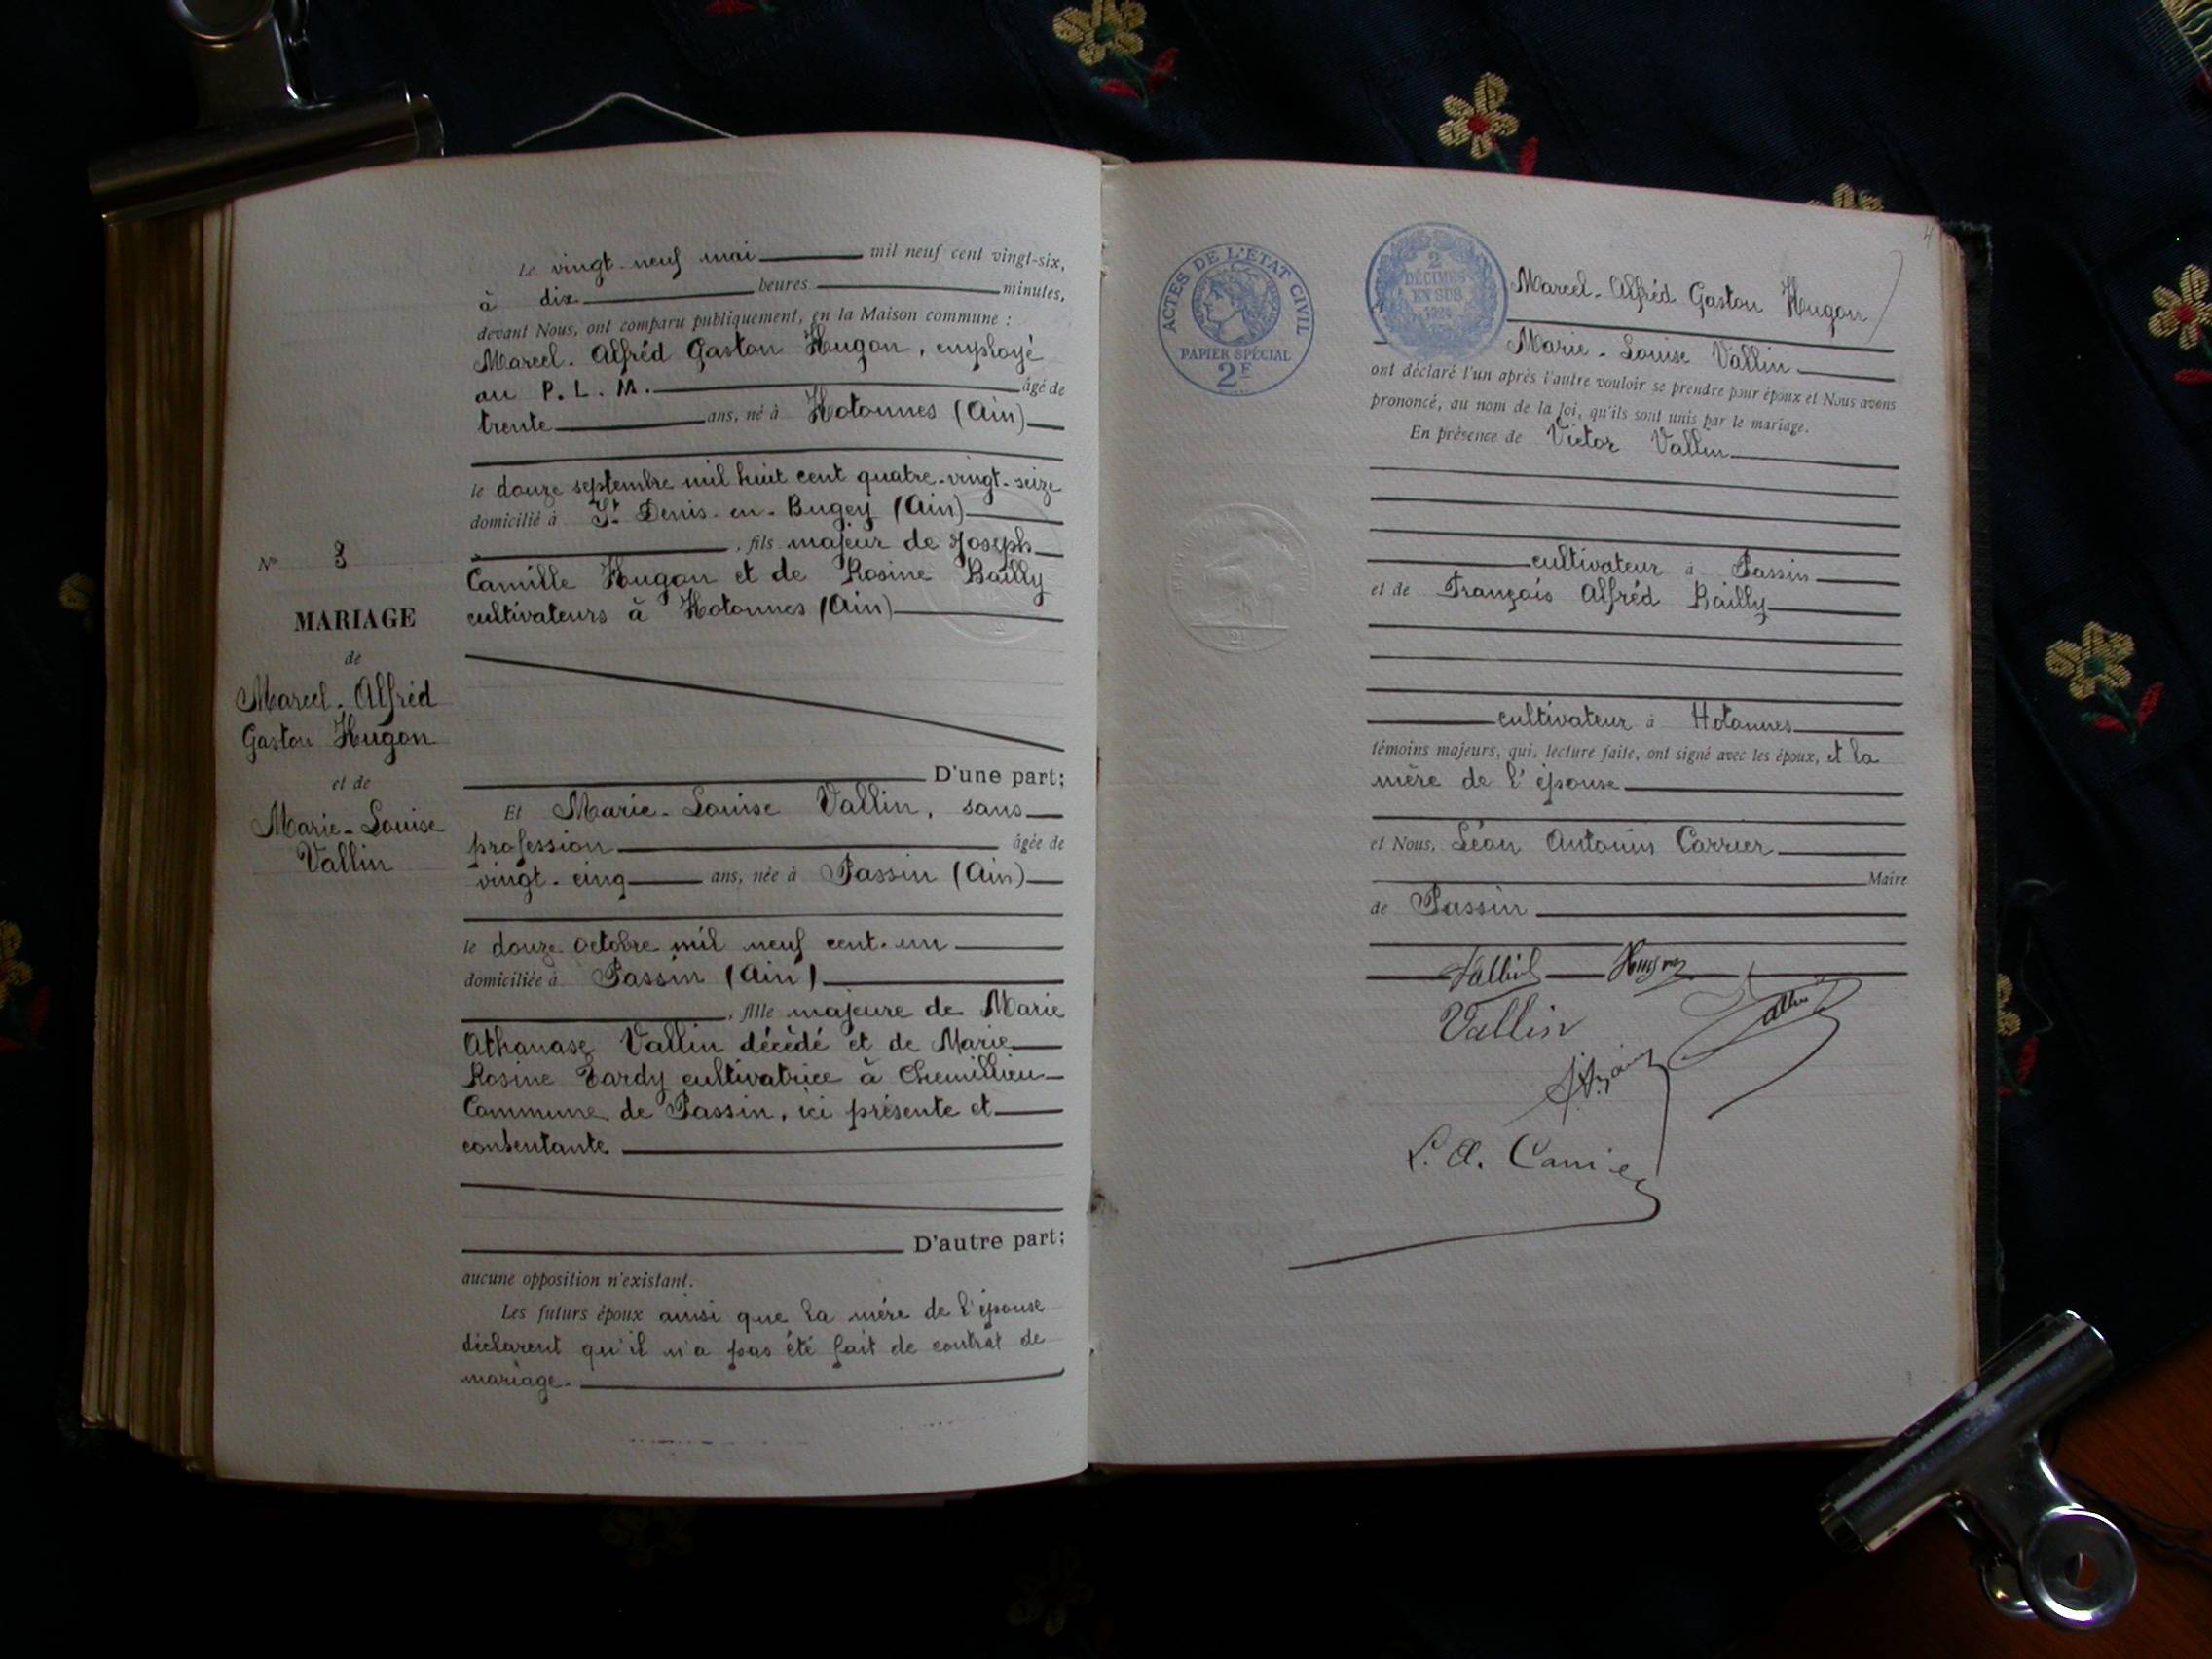 Le vingt-neuf mai mil neuf cent vingt-six,
à dix heures minutes,
devant Nous, ont comparu publiquement, en la Maison commune :
Marcel-Alfréd Gaston Hugon, employé
au P.L.M. âgé de
trente ans, né à Hotonnes (Ain)
le douze septembre mil huit cent quatre-vingt-seize
domicilié à St Denis-en-Bugey (Ain)
, fils majeur de Joseph
Camille Hugon et de Rosine Bailly
cultivateurs à Hotonnes (Ain)
D'une part;
Et Marie-Louise Vallin, sans
profession âgée de
vingt-cinq ans, née à Passin (Ain)
le douze octobre mil neuf cent-un
domiciliée à Passin (Ain)
, fille majeure de Marie
Athanase Vallin décédé et de Marie
Rosine Tardy cultivatrice à Chemillieu
Commune de Passin, ici présente et
consentante
D'autre part;
aucune opposition n'existant.
Les futurs époux ainsi que la mère de l'épouse
déclarent qu'il n'a pas été fait de contrat de
mariage.
N° 3
MARIAGE
de
Marcel-Alfréd
Gaston Hugon
et de
Marie-Louise
Vallin
ACTES DE L'ÉTAT CIVIL
PAPIER SPÉCIAL
2F
2
DÉCIMES
EN SUS
4
Marcel-Alfréd Gaston Hugon
Marie-Louise Vallin
ont déclaré l'un après l'autre vouloir se prendre pour époux et Nous avons
prononcé, au nom de la loi, qu'ils sont unis par le mariage.
En présence de Victor Vallin
cultivateur à Passin
et de François Alfréd Bailly
cultivateur à Hotonnes
témoins majeurs, qui, lecture faite, ont signé avec les époux, et la
mère de l'épouse
et Nous, Léon Antonin Carrier
Maire
de Passin
Vallin Hugon
Vallin
L. A. Carrier